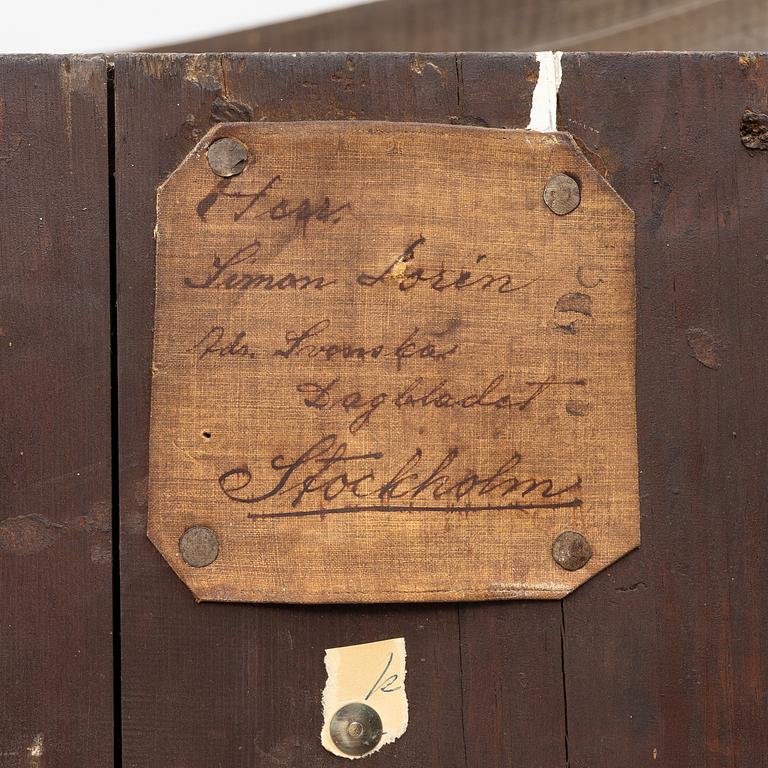 Herr.
Simon Sorén
Adr. Svenska
Dagbladet
Stockholm
k